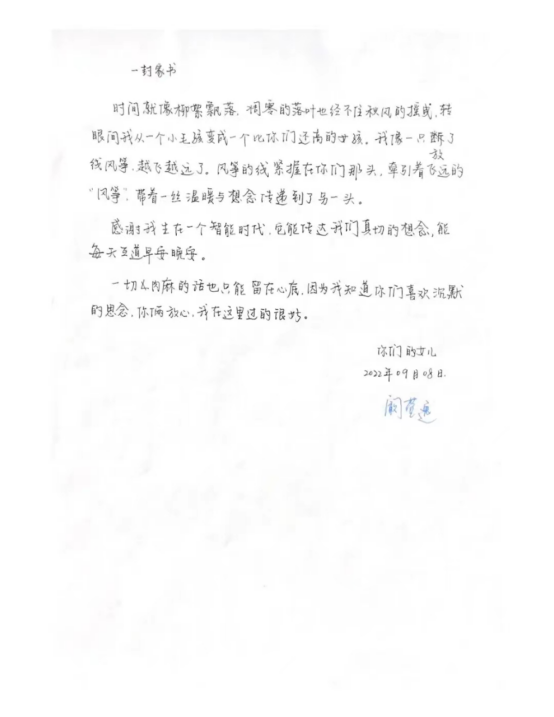 一封家书
时间就像柳絮飘落，凋零的落叶也经不住秋风的摇曳，转
眼间我从一个小毛孩变成一个比你们还高的女孩。我像一只断了
线风筝，越飞越远了。风筝的线紧握在你们那头，牵引着放飞远的
“风筝”，带着一丝温暖与想念传递到了另一头。
感谢我生在一个智能时代，它能传达我们真切的想念，能
每天互道早安晚安。
一切么肉麻的话也只能留在心底，因为我知道你们喜欢沉默
的思念，你俩放心，我在这里过的很好。
你们的女儿
2022年09月08日.